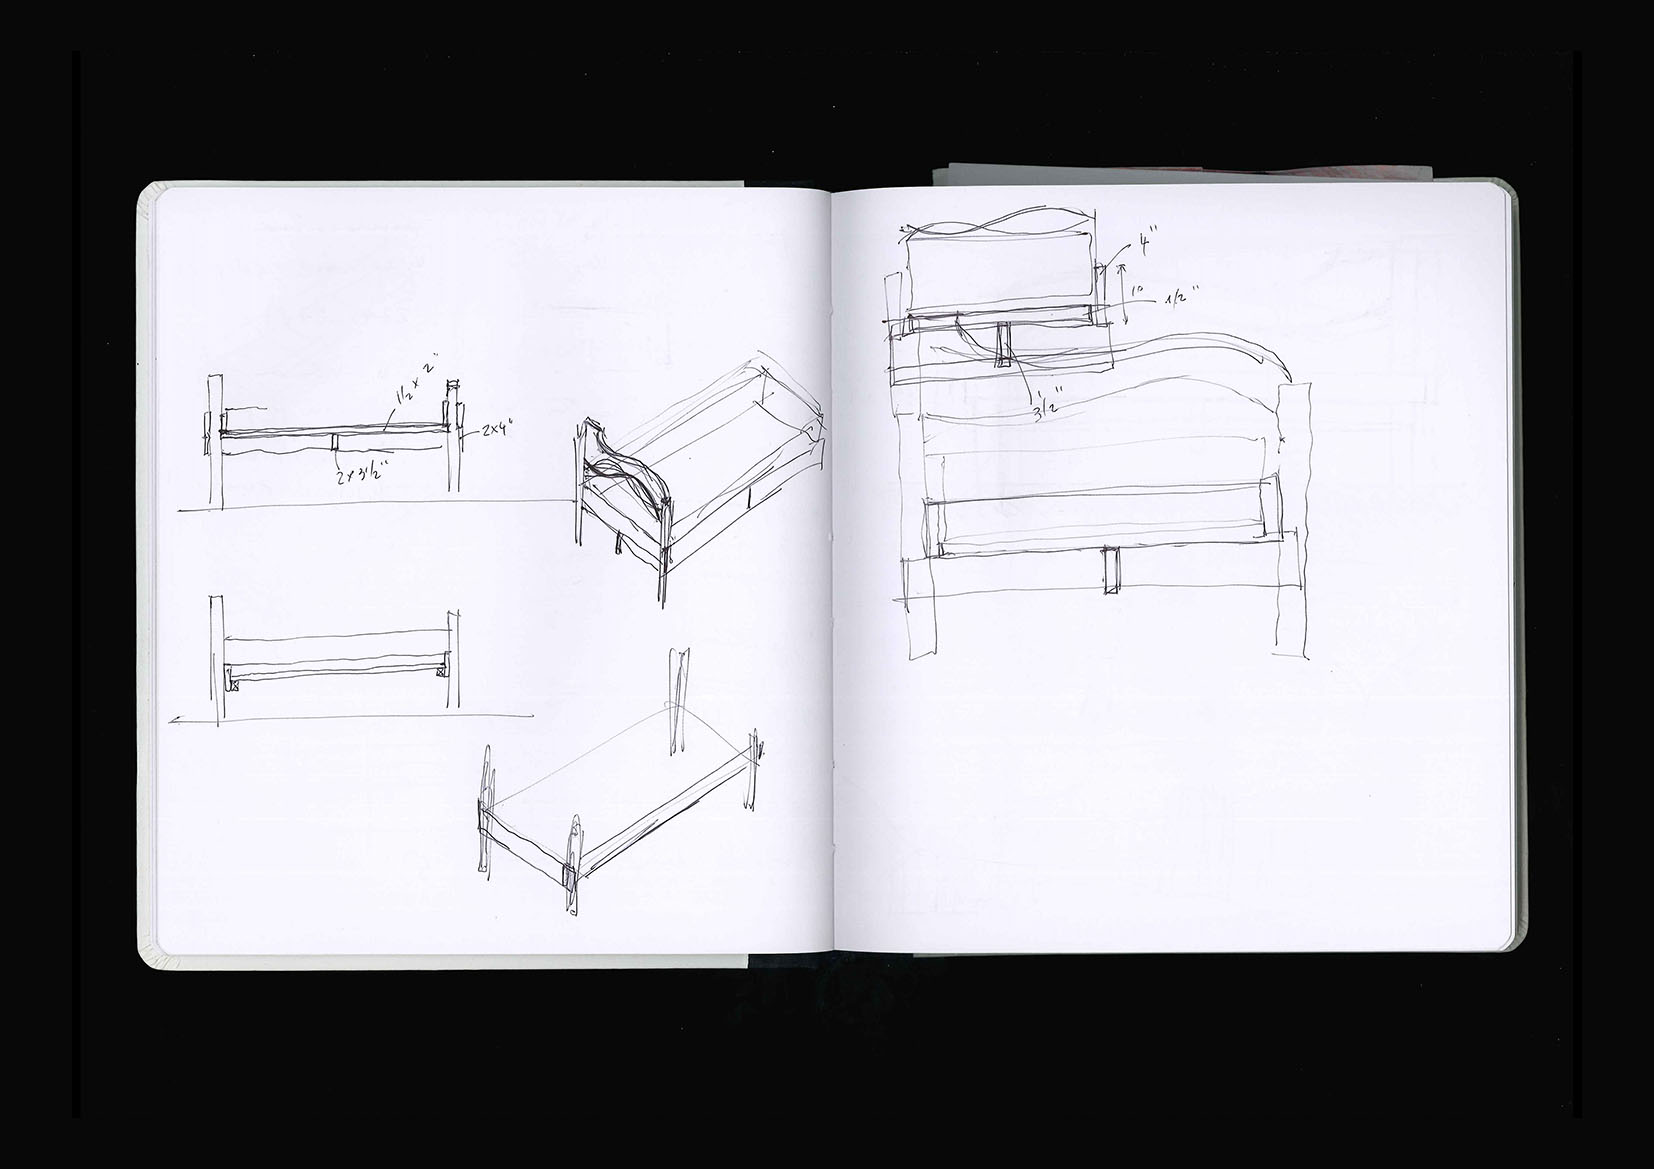 1 1/2 x 2"
2x4"
2 x 3 1/2"
4"
1"
1/2"
3 1/2"